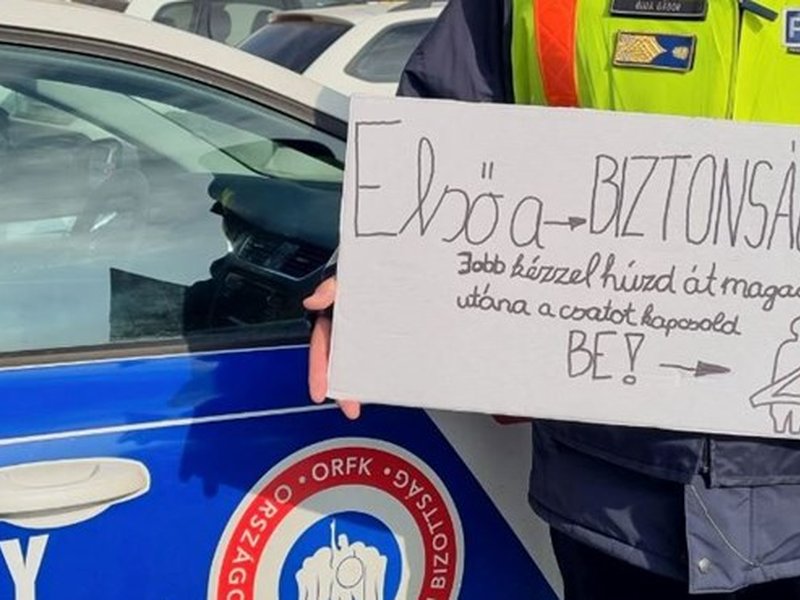 Első a → BIZTONSÁ
Jobb kézzel húzd át maga
utána a csatot kapcsold
BE! →
ORSZÁGO • ORFK • BIZOTTSÁG
Y
P